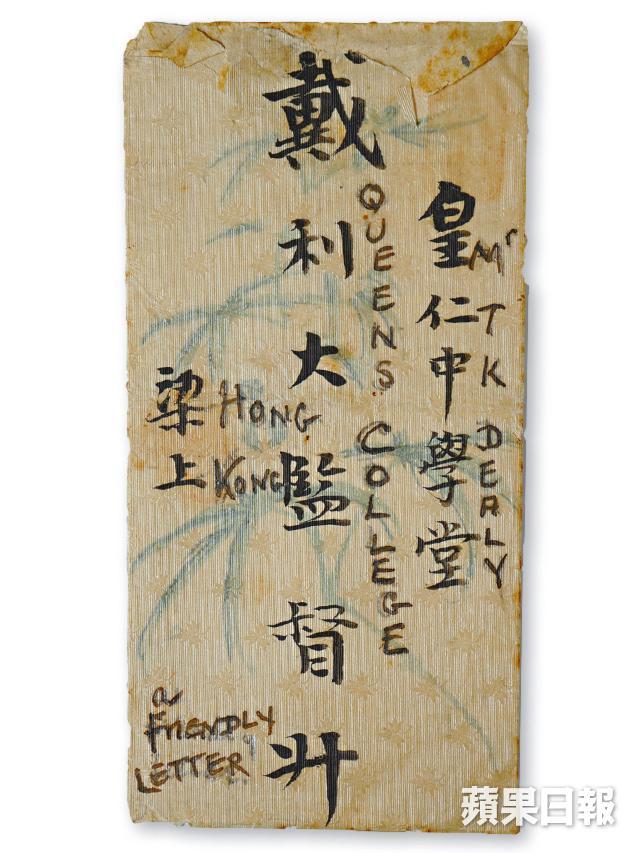 皇仁中學堂
Mr T K DEALY
戴利大監督升
QUEENS COLLEGE
HONG
KONG
梁上
a
FRIENDLY
LETTER
蘋果日報